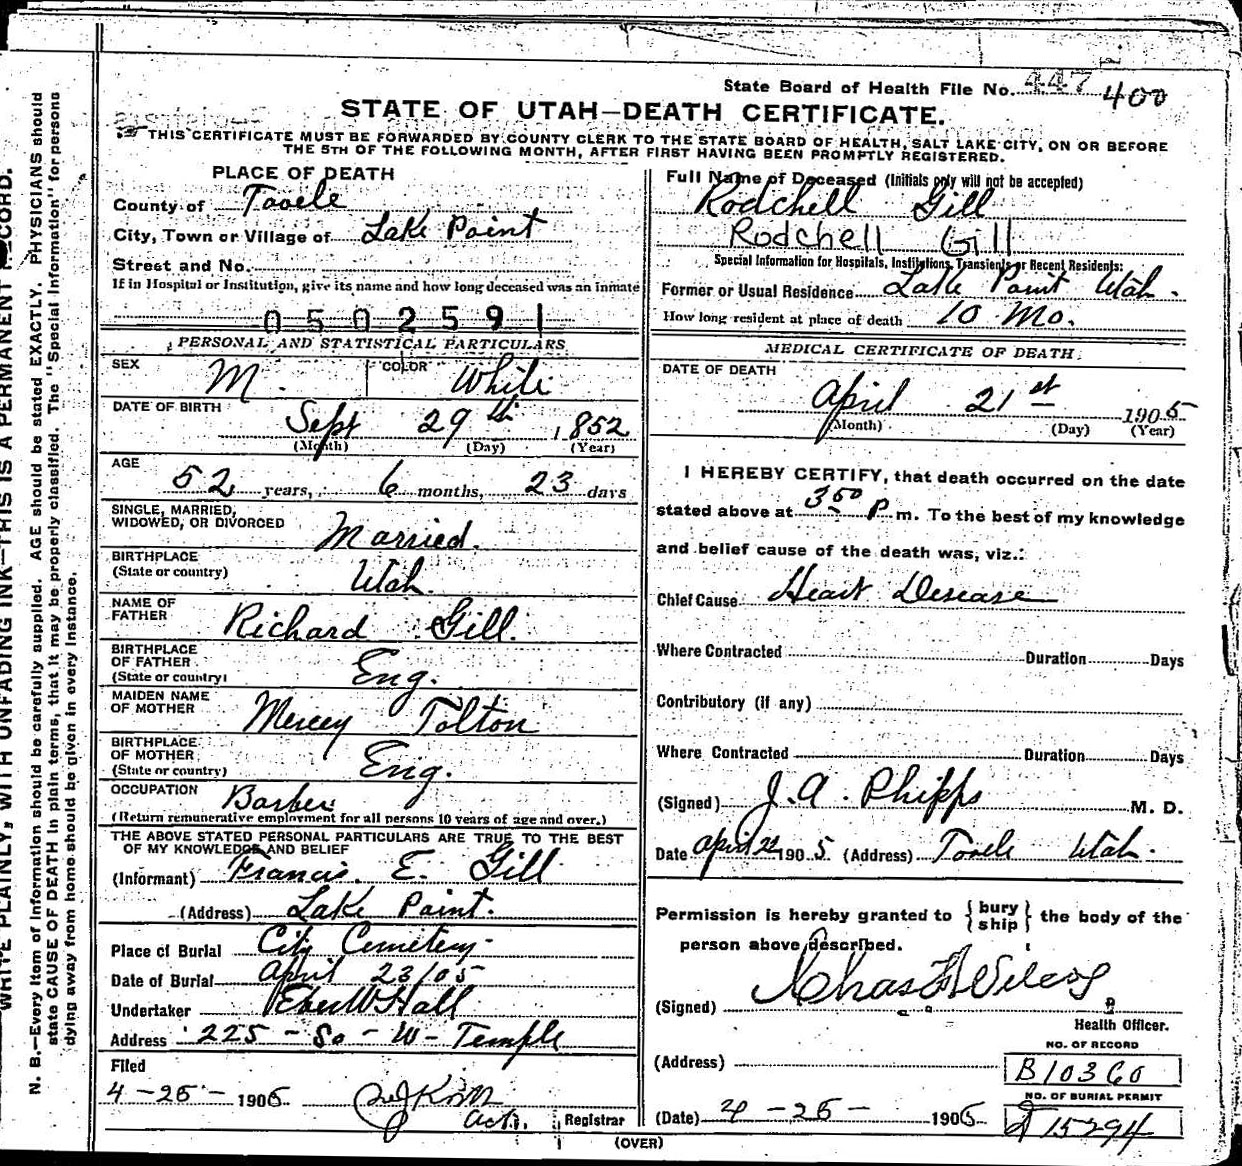 State Board of Health File No. 447 400
STATE OF UTAH—DEATH CERTIFICATE.
THIS CERTIFICATE MUST BE FORWARDED BY COUNTY CLERK TO THE STATE BOARD OF HEALTH, SALT LAKE CITY, ON OR BEFORE
THE 5TH OF THE FOLLOWING MONTH, AFTER FIRST HAVING BEEN PROMPTLY REGISTERED.
PLACE OF DEATH
County of Tooele
City, Town or Village of Lake Point
Street and No.
If in Hospital or Institution, give its name and how long deceased was an inmate
0502591
PERSONAL AND STATISTICAL PARTICULARS
SEX M. COLOR White
DATE OF BIRTH Sept 29th 1852
(Month) (Day) (Year)
AGE
52 years, 6 months, 23 days
SINGLE, MARRIED,
WIDOWED, OR DIVORCED Married.
BIRTHPLACE
(State or country) Utah.
NAME OF
FATHER Richard Gill.
BIRTHPLACE
OF FATHER
(State or country) Eng.
MAIDEN NAME
OF MOTHER Mercey Tolton
BIRTHPLACE
OF MOTHER
(State or country) Eng.
OCCUPATION Barber
(Return remunerative employment for all persons 10 years of age and over.)
THE ABOVE STATED PERSONAL PARTICULARS ARE TRUE TO THE BEST
OF MY KNOWLEDGE AND BELIEF
(Informant) Francis. E. Gill
(Address) Lake Point.
Place of Burial City Cemetery
Date of Burial April 23/05
Undertaker Eber W Hall
Address 225 - So - W - Temple
Filed
4-25- 1905
Act. Registrar
(OVER)
Full Name of Deceased (Initials only will not be accepted)
Rodchell Gill
Rodchell Gill
Special Information for Hospitals, Institutions, Transients or Recent Residents:
Former or Usual Residence Lake Point Utah.
How long resident at place of death 10 Mo.
MEDICAL CERTIFICATE OF DEATH.
DATE OF DEATH
April 21st 1905
(Month) (Day) (Year)
I HEREBY CERTIFY, that death occurred on the date
stated above at 3 50 P m. To the best of my knowledge
and belief cause of the death was, viz.:
Chief Cause Heart Desease
Where Contracted Duration Days
Contributory (if any)
Where Contracted Duration Days
(Signed) J. A. Phipps M. D.
Date April 22 1905 (Address) Tooele Utah.
Permission is hereby granted to {bury
ship} the body of the
person above described.
(Signed)
Health Officer.
(Address)
NO. OF RECORD
B10360
NO. OF BURIAL PERMIT
15294
(Date) 4-25- 1905
WRITE PLAINLY, WITH UNFADING INK—THIS IS A PERMANENT RECORD.
N. B.—Every item of information should be carefully supplied. AGE should be stated EXACTLY. PHYSICIANS should
state CAUSE OF DEATH in plain terms, that it may be properly classified. The "Special Information" for persons
dying away from home should be given in every instance.